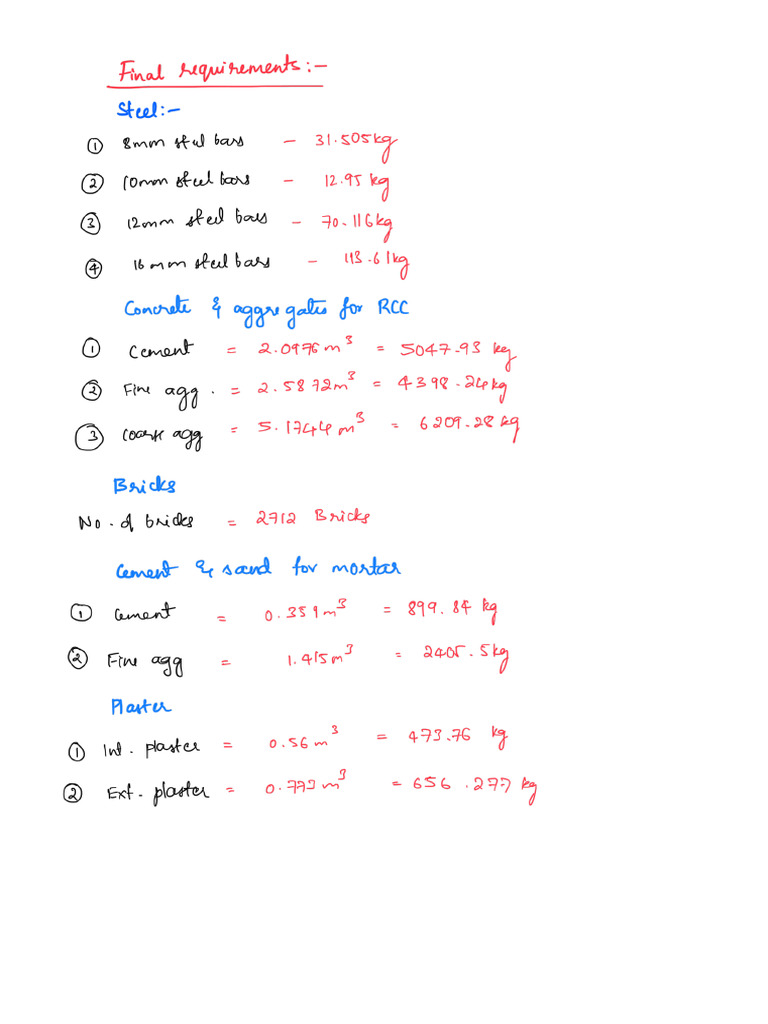 Final requirements:-
Steel:-
① 8mm steel bars - 31.505kg
② 10mm steel bars - 12.95 kg
③ 12mm steel bars - 70.116kg
④ 16mm steel bars - 113.61kg
Concrete & aggregates for RCC
① Cement = 2.0976 m³ = 5047.93 kg
② Fine agg. = 2.5872m³ = 4398.24kg
③ Coarse agg = 5.1744 m³ = 6209.28 kg
Bricks
No. of bricks = 2712 Bricks
Cement & sand for mortar
① Cement = 0.359m³ = 899.84 kg
② Fine agg = 1.415m³ = 2405.5kg
Plaster
① Int. plaster = 0.56m³ = 473.76 kg
② Ext. plaster = 0.773m³ = 656.277 kg